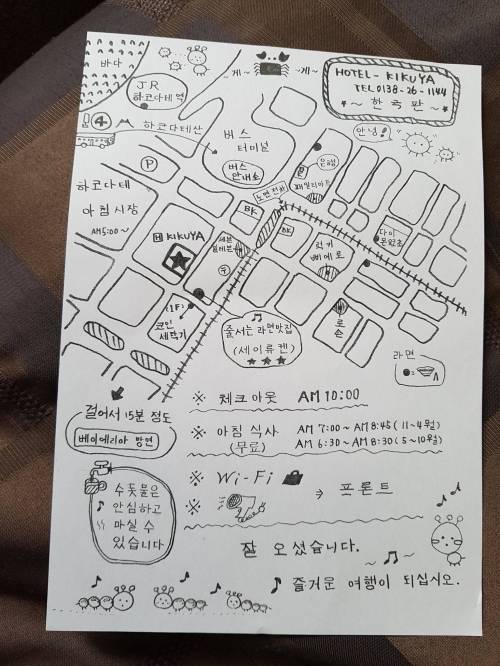 바다
~게~ ~게~
HOTEL-KIKUYA
TEL 0138-26-1144
~한국판~
JR
하코다테역
안녕!
④
하코다테산
버스
터미널
버스
안내소
은행
패밀리마트
P
노면전차
하코다테
아침 시장
AM5:00~
BK
BK
H KIKUYA
세븐
일레븐
럭키
삐에로
〒
(1F)
코인
세탁기
줄서는 라면맛집
(세이류켄)
★★★
로손
라면
걸어서 15분 정도
베이에리아 방면
※ 체크아웃 AM 10:00
※ 아침 식사 AM 7:00~AM 8:45(11~4월)
(무료) AM 6:30~AM 8:30(5~10월)
수돗물은
안심하고
마실 수
있습니다
※ Wi-Fi
※ → 프론트
잘 오셨습니다.
즐거운 여행이 되십시오.